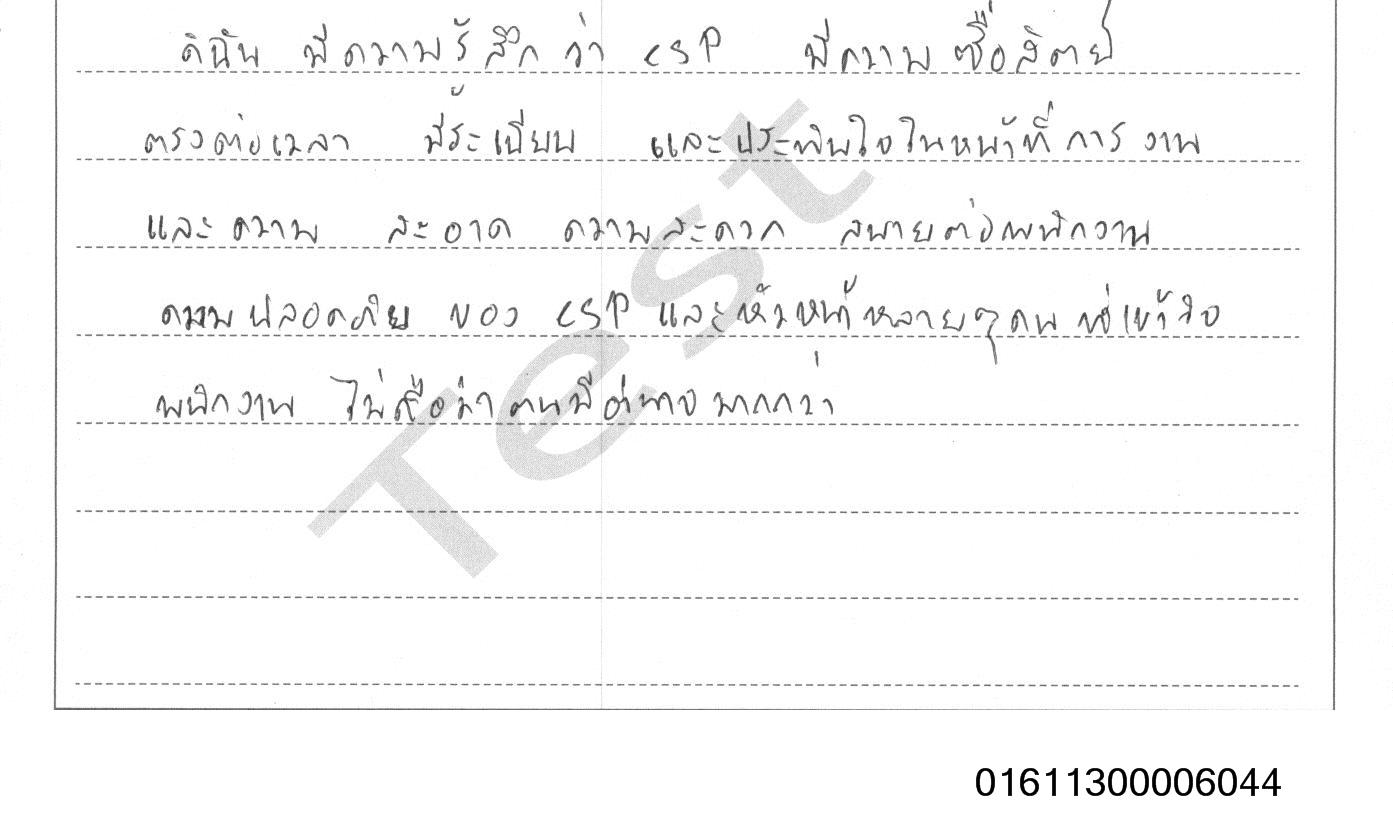 ดิฉัน มีความรู้สึกว่า CSP มีความซื่อสัตย์
ตรงต่อเวลา มีระเบียบ และประทับใจในหน้าที่การงาน
และความ สะอาด ความสะดวก สบายต่อพนักงาน
ความปลอดภัย ของ CSP และหัวหน้าหลายๆคน ที่เข้าใจ
พนักงาน ไม่ถือว่าตนมีอำนาจมากกว่า
Test
01611300006044